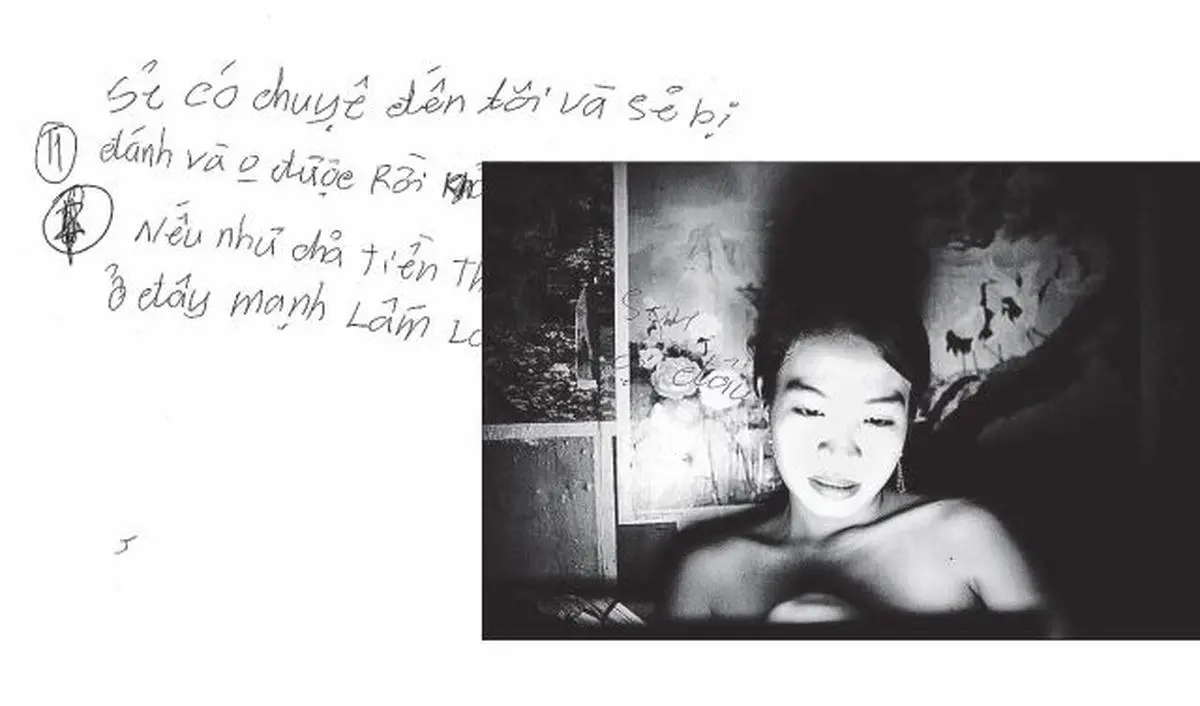 Sẻ có chuyệ đến tới và sẻ bị
11 đánh và o được Rời
Nếu như chả tiền Th
ở đây mạnh Lấm Lo